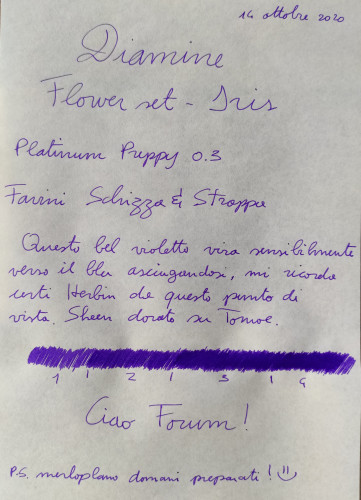 14 ottobre 2020
Diamine
Flower set - Iris
Platinum Preppy 0.3
Favini Schizza & Strappa
Questo bel violetto vira sensibilmente
verso il blu asciugandosi, mi ricorda
certi Herbin da questo punto di
vista. Sheen dorato su Tomoe.
1 | 2 | 3 | 4
Ciao Forum!
P.S. merloplano domani preparati!